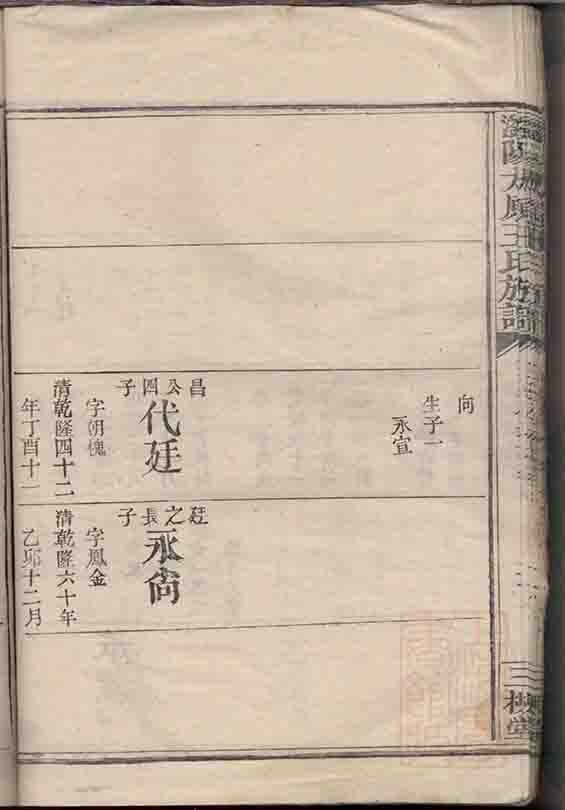 陽太原王氏族譜
三槐堂
向
生子一
永宣
昌公四子
代廷
字朝槐
清乾隆四十二
年丁酉十二
廷之長子
永尙
字鳳金
清乾隆六十年
乙卯十二月